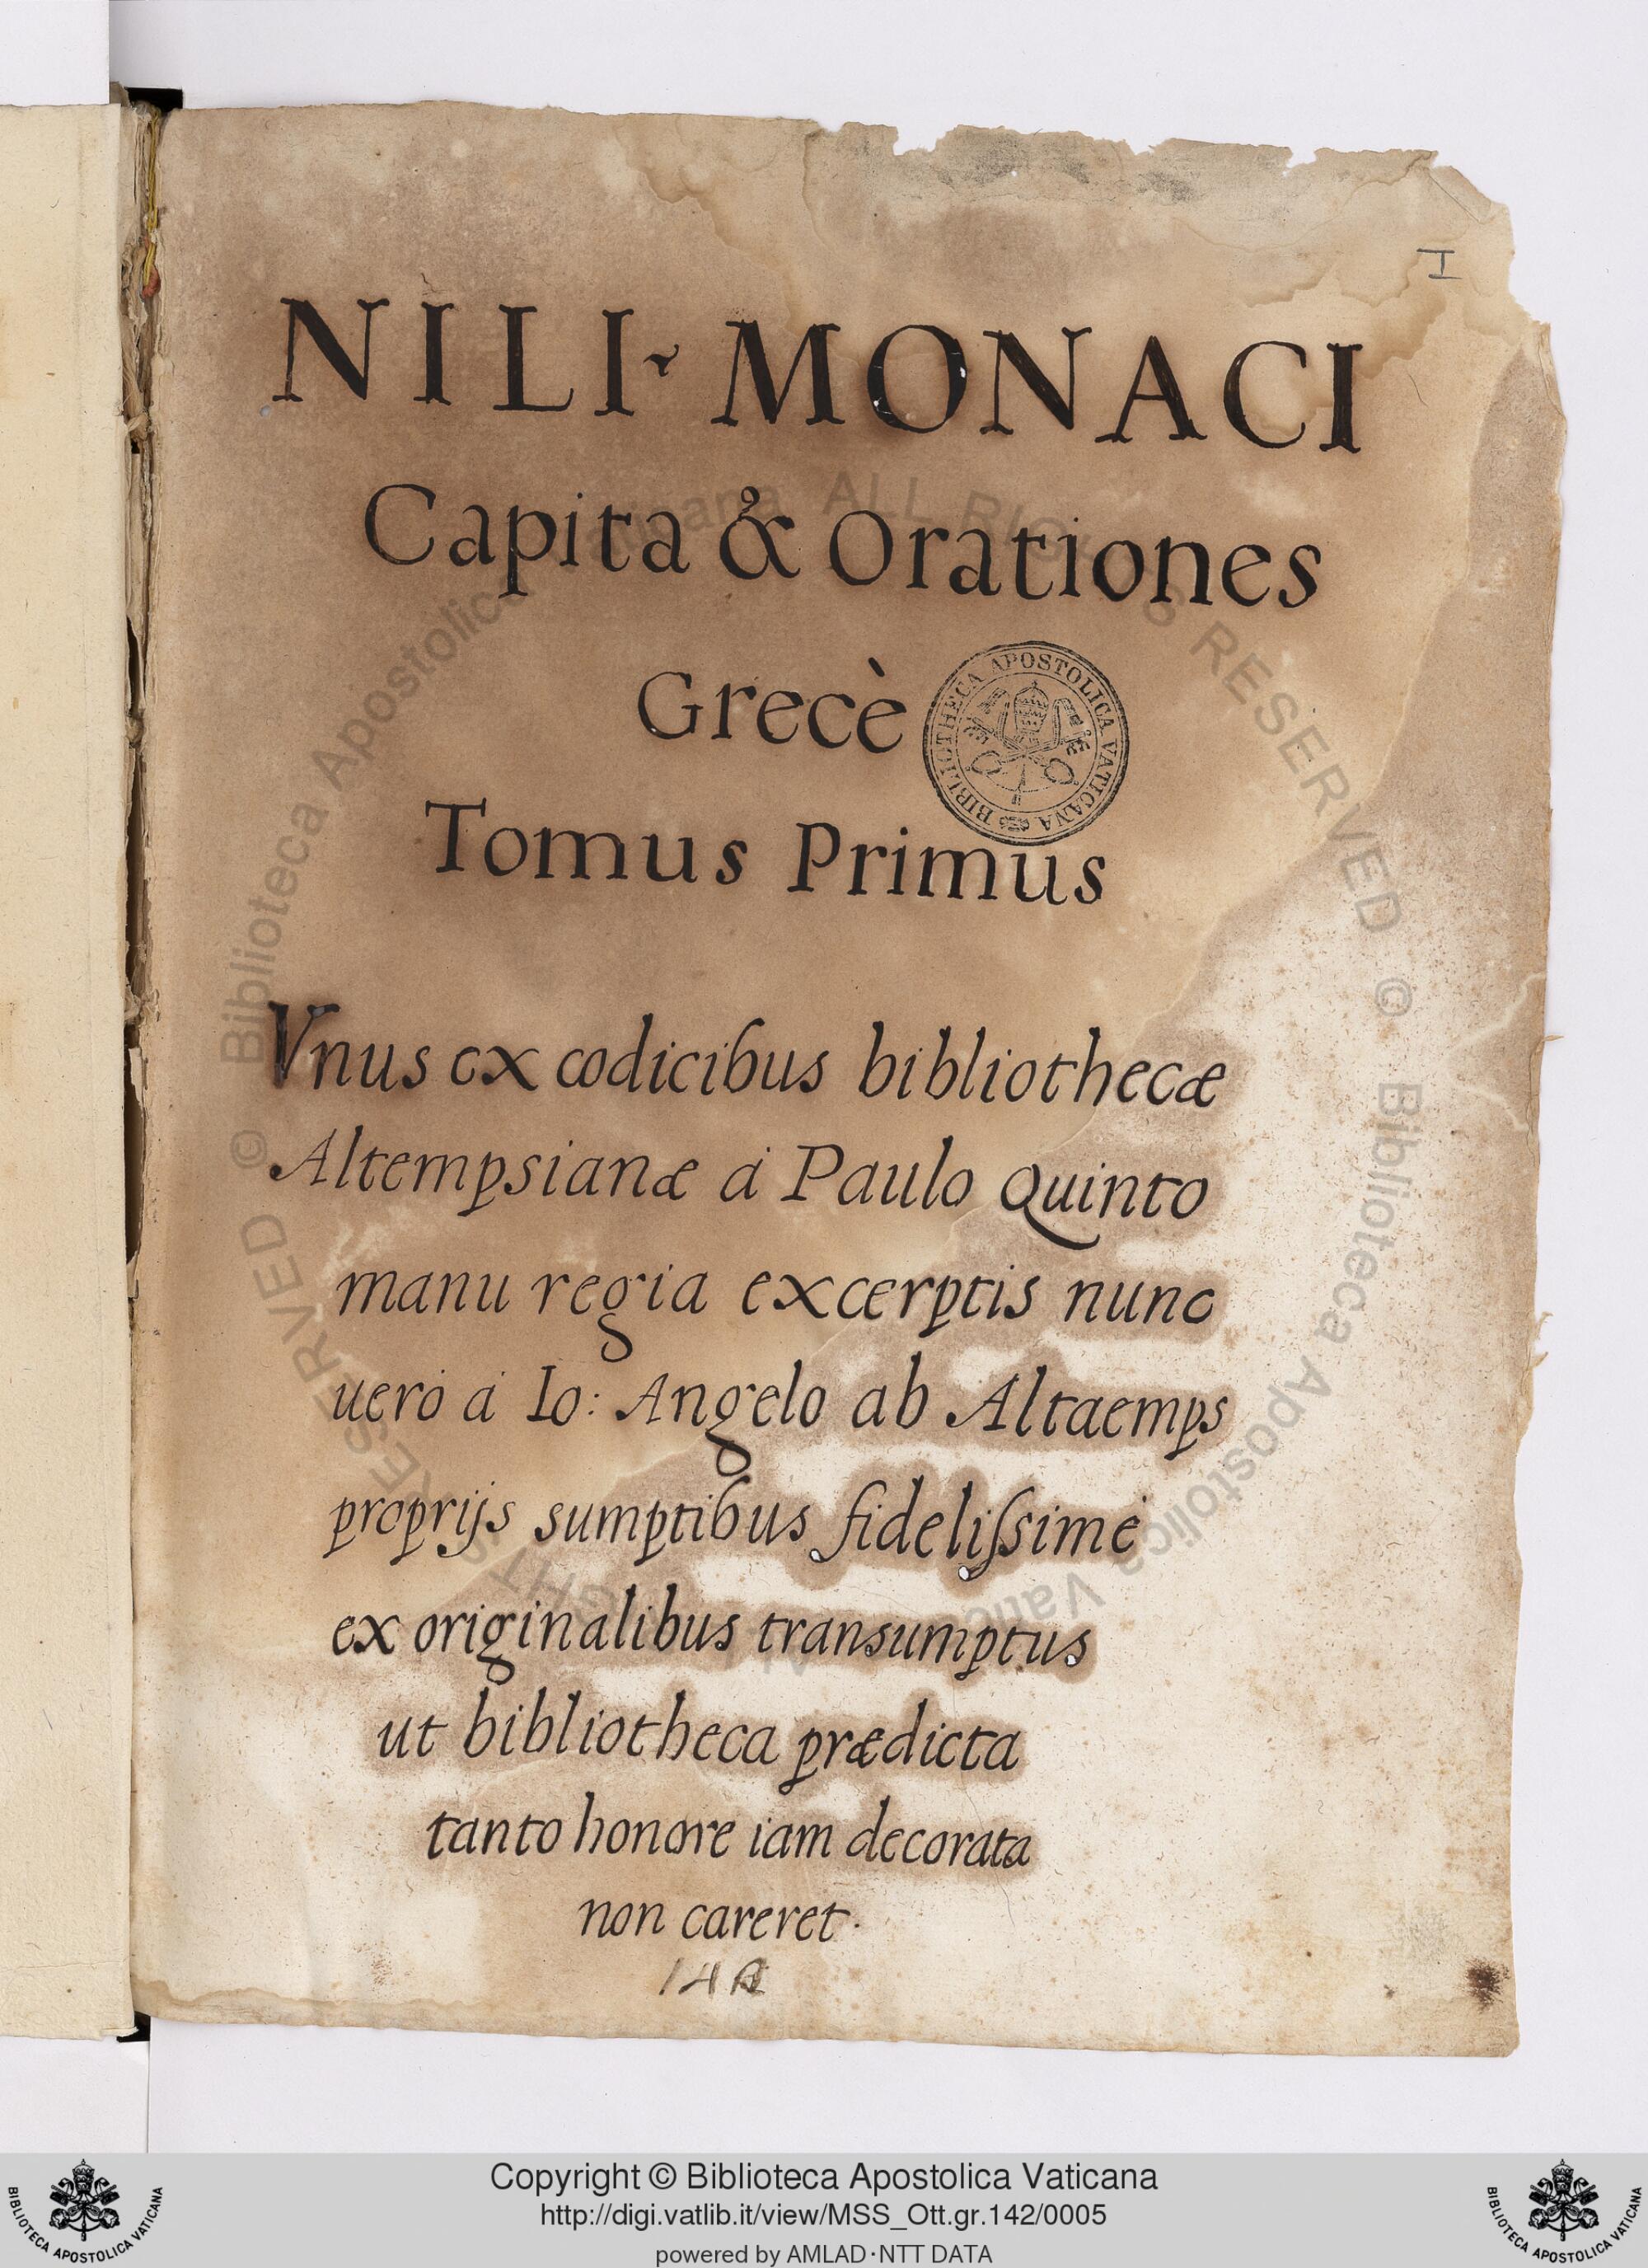 I
NILI MONACI
Capita & Orationes
Grecè
BIBLIOTHECA APOSTOLICA VATICANA
Tomus Primus
Vnus ex codicibus bibliothecæ
Altempsianæ à Paulo Quinto
manu regia excerptis nunc
uerò à Io: Angelo ab Altaemps
proprijs sumptibus fidelissimè
ex originalibus transumptus
ut bibliotheca prædicta
tanto honore iam decorata
non careret.
© Biblioteca Apostolica Vaticana ALL RIGHTS RESERVED © Biblioteca Apostolica Vaticana ALL RIGHTS RESERVED
BIBLIOTECA APOSTOLICA VATICANA
Copyright © Biblioteca Apostolica Vaticana
http://digi.vatlib.it/view/MSS_Ott.gr.142/0005
powered by AMLAD·NTT DATA
BIBLIOTECA APOSTOLICA VATICANA